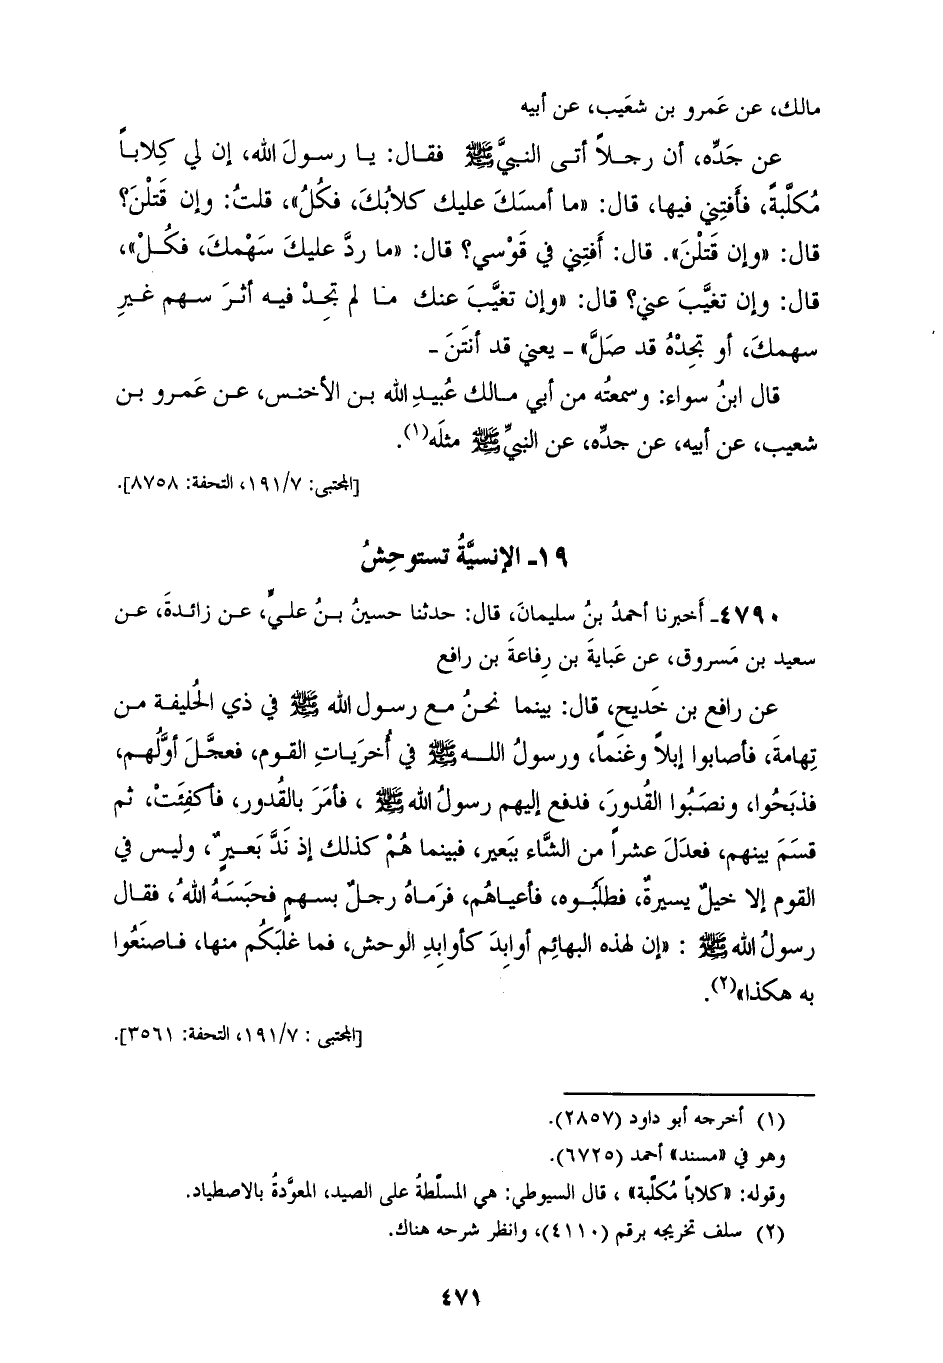 مالك، عن عَمرو بن شعَيب، عن أبيه
عن جَدِّه، أن رجـلاً أتـى النـبيَّ ﷺ فقـال: يـا رسـولَ الله، إن لي كِلابـاً
مُكلَّبةً، فأَفتِني فيها، قال: «ما أمسَكَ عليك كلابُكَ، فكُلْ»، قلتُ: وإن قَتَلْنَ؟
قال: «وإن قَتلْنَ». قال: أَفتِني في قَوْسي؟ قال: «ما ردَّ عليكَ سَهْمكَ، فكُـلْ»،
قال: وإن تغيَّبَ عني؟ قال: «وإن تغيَّبَ عنك مـا لم تجـدْ فيـه أثـرَ سـهم غـيرِ
سهمكَ، أو تجِدْهُ قد صَلَّ» ـ يعني قد أنتَنَ ـ
قال ابنُ سواء: وسمعتُه من أبي مـالك عُبيـدِ الله بـن الأخنـس، عـن عَمـرو بـن
شعيب، عن أبيه، عن جدِّه، عن النبيِّ ﷺ مثلَه(١).
[المجتبى: ١٩١/٧، التحفة: ٨٧٥٨].
١٩ـ الإنسيَّةُ تستوحِشُ
٤٧٩٠ـ أَخبرنا أحمدُ بنُ سليمانَ، قال: حدثنا حسينُ بـنُ علـيٍّ، عـن زائـدةَ، عـن
سعيد بن مَسروق، عن عَبايةَ بن رِفاعةَ بن رافع
عن رافع بن خَديج، قال: بينما نحـنُ مـع رسـول الله ﷺ في ذي الحُليفـة مـن
تِهامةَ، فأصابوا إبلاً وغنَماً، ورسولُ اللـه ﷺ في أُخرَيـاتِ القـوم، فعجَّـلَ أوَّلُهـم،
فذبَحُوا، ونصَبُوا القُدورَ، فدفع إليهم رسولُ الله ﷺ ، فأمَرَ بالقُدور، فأُكفِئَتْ، ثم
قسَمَ بينهم، فعدَلَ عشراً من الشَّاء ببَعير، فبينما هُمْ كذلك إذ نَدَّ بَعـيرٌ، وليـس في
القوم إلا خيلٌ يسيرةٌ، فطلَبُـوه، فأعيـاهُم، فرَمـاهُ رجـلٌ بسـهمٍ فحبَسَـهُ اللهُ، فقـال
رسولُ الله ﷺ : «إن لهذه البهائِم أوابِدَ كأوابِدِ الوحش، فما غلَبَكُم منها، فـاصنَعُوا
به هكذا»(٢).
[المجتبى : ١٩١/٧، التحفة: ٣٥٦١].
(١) أخرجه أبو داود (٢٨٥٧).
وهو في «مسند» أحمد (٦٧٢٥).
وقوله: «كلاباً مُكلَّبة» ، قال السيوطي: هي المسلَّطةُ على الصيد، المعوَّدةُ بالاصطياد.
(٢) سلف تخريجه برقم (٤١١٠)، وانظر شرحه هناك.
٤٧١